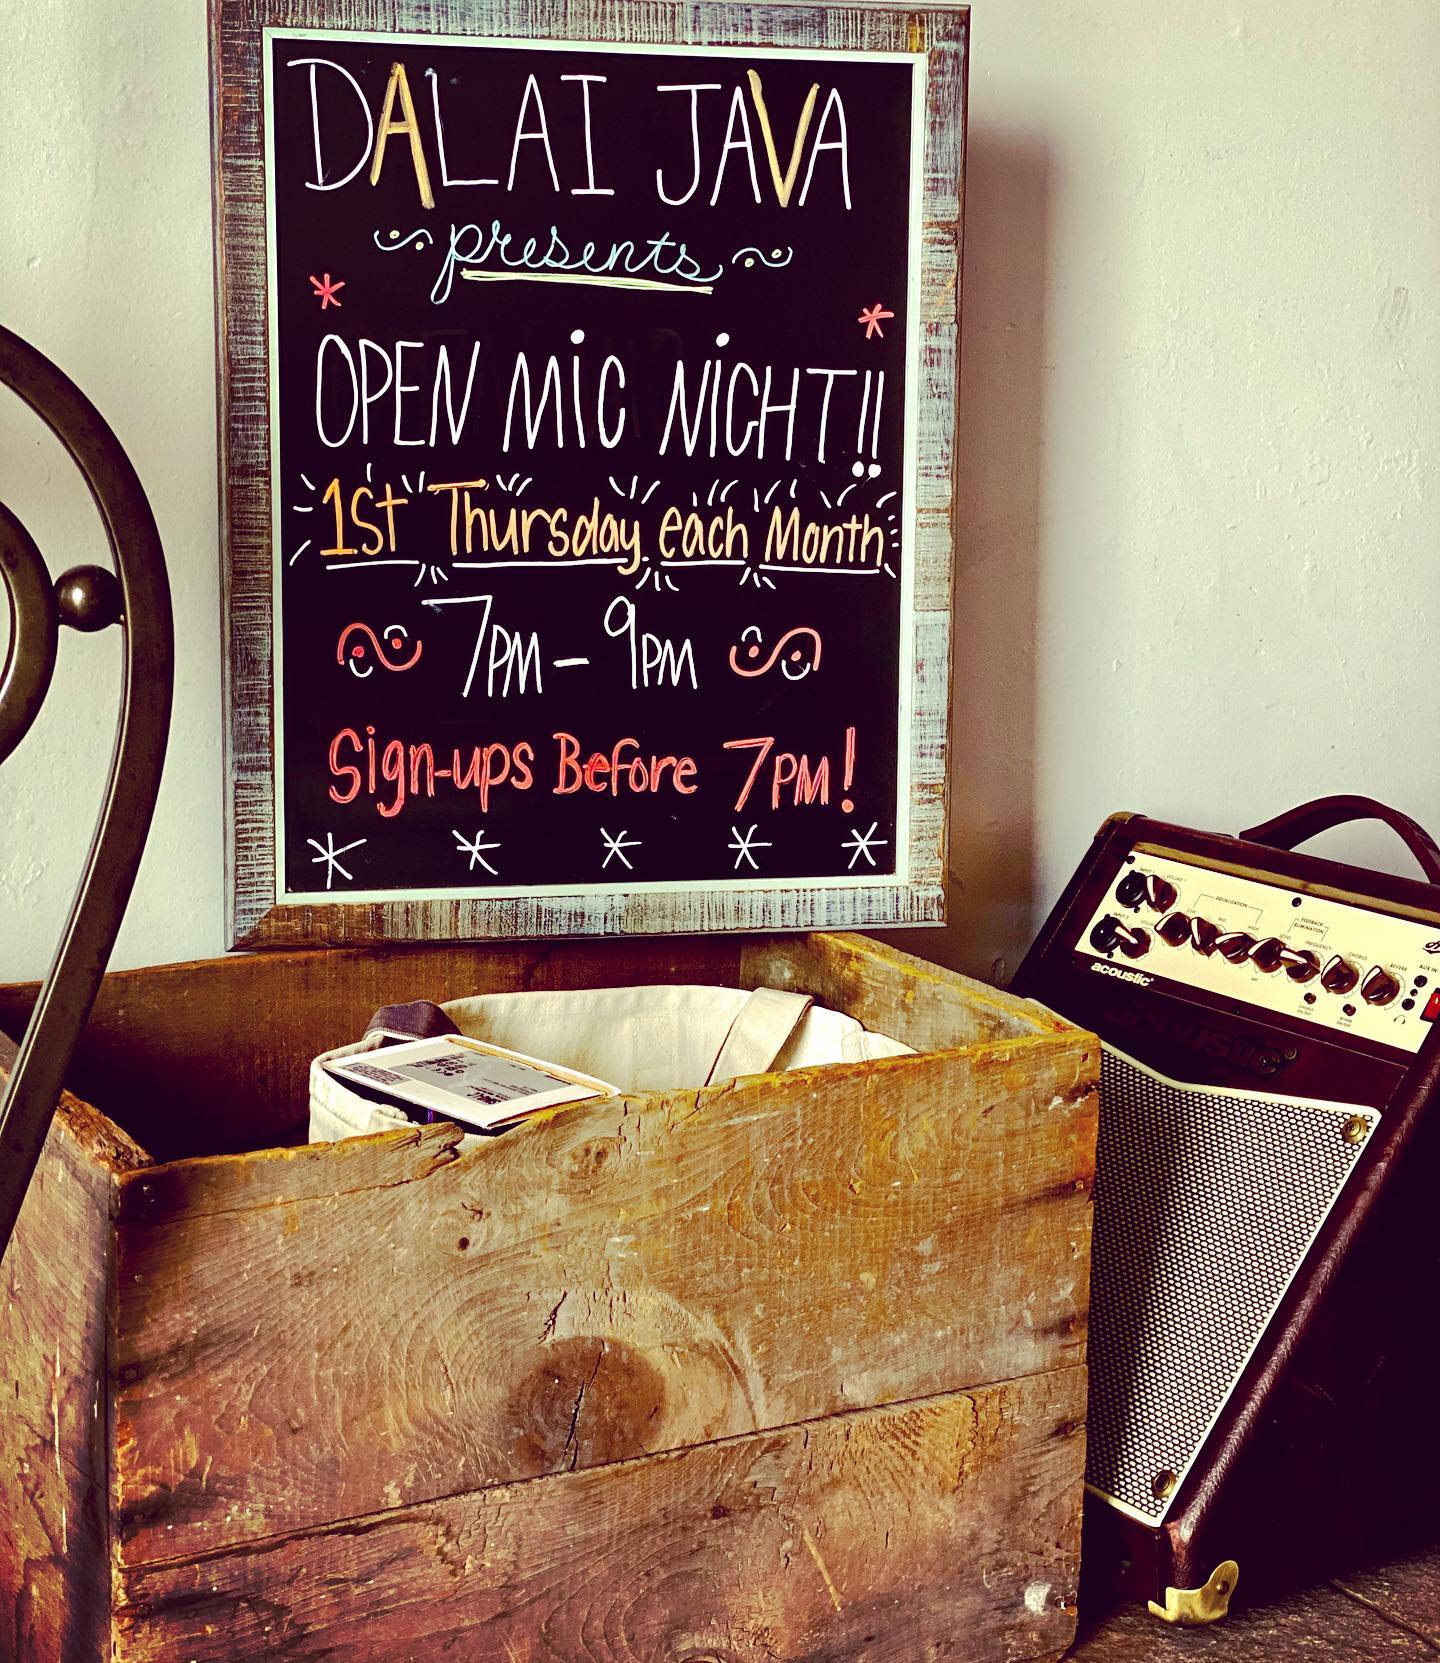 DALAI JAVA
presents
OPEN MIC NIGHT!!
1st Thursday each Month
7PM - 9PM
Sign-ups Before 7PM!
INPUT 1
VOLUME 1
EQUALIZATION
FEEDBACK
ELIMINATION
LEVEL
FREQUENCY
CHORUS
REVERB
AUX IN
INPUT 2
acoustic
acoustic